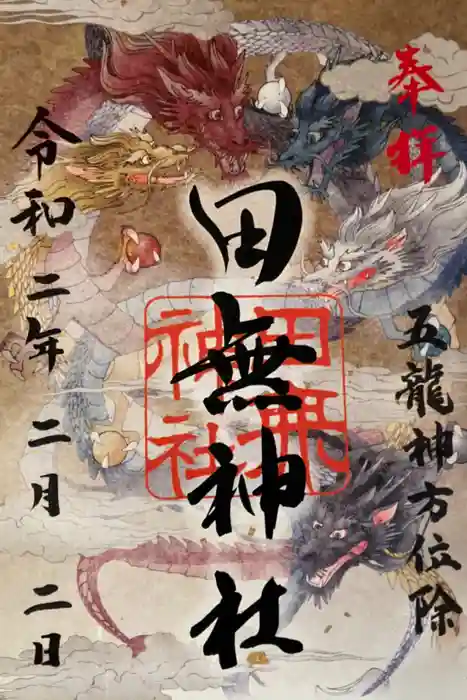 奉拝
五龍神方位除
田無神社
田無神社
令和二年二月二日